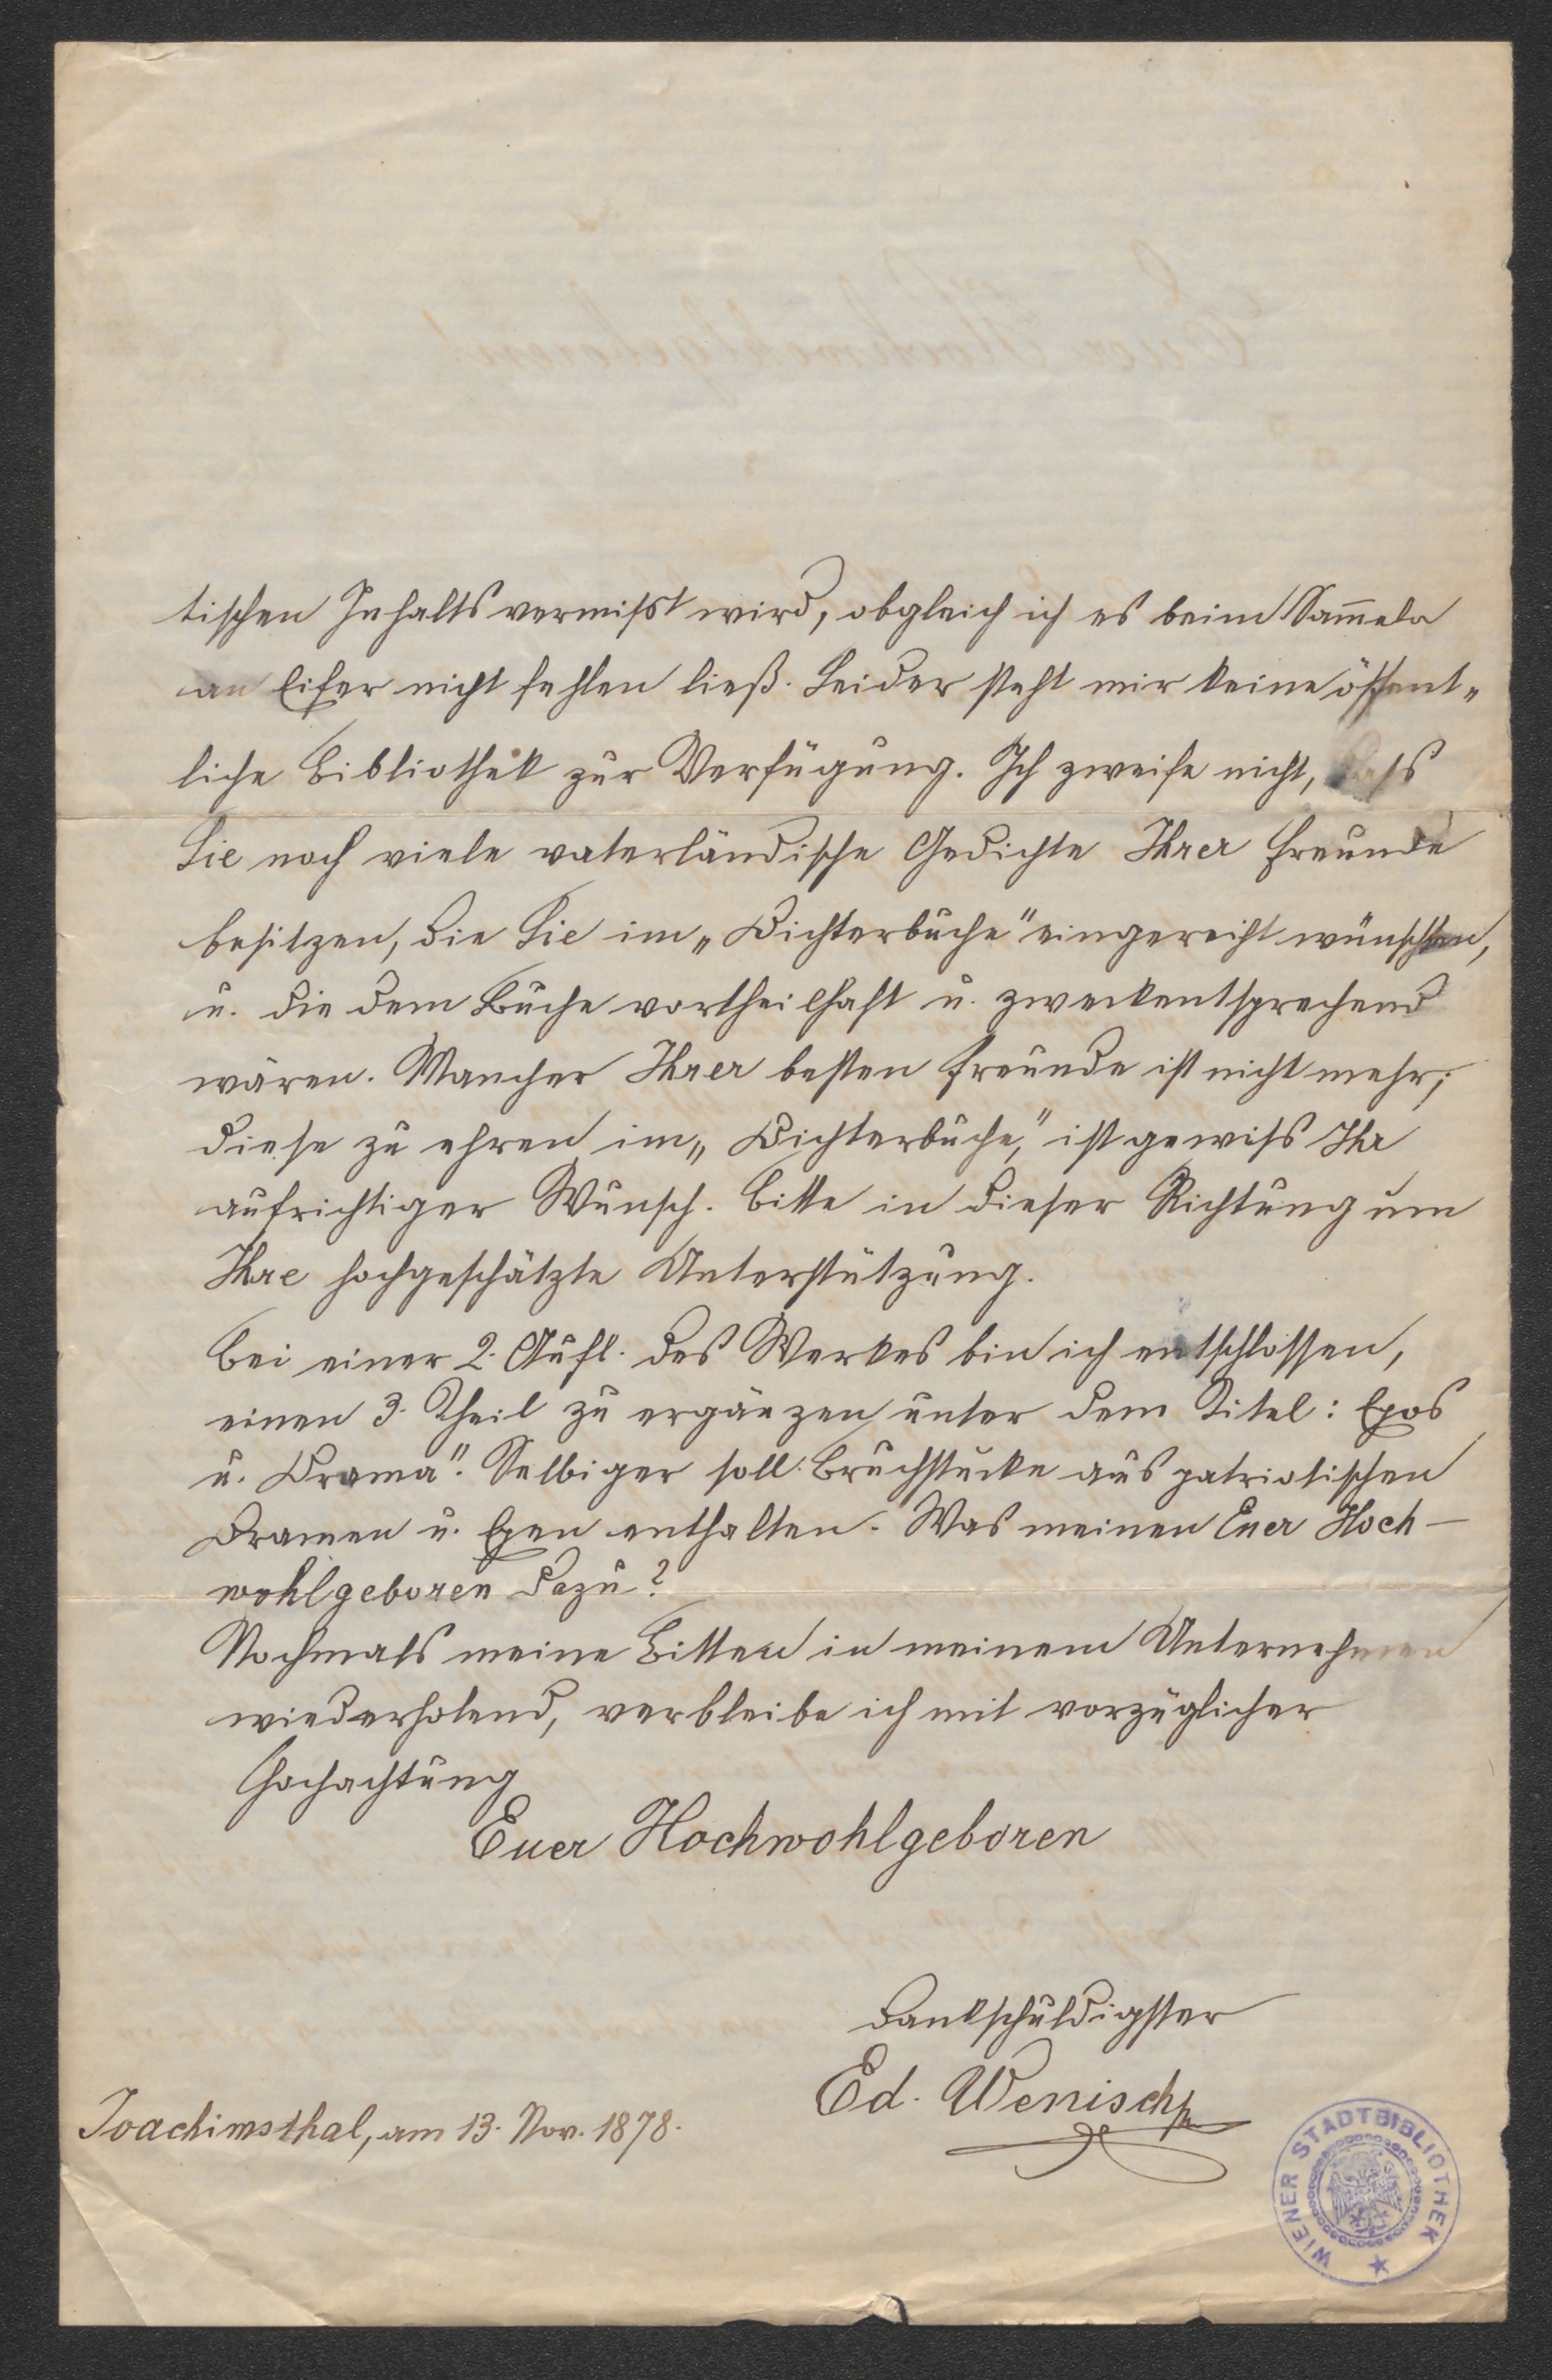 tischen Inhalts vermißt wird, obgleich ich es beim Sam̅eln
an Eifer nicht fehlen ließ. Leider steht mir keine öffent„
liche Bibliothek zur Verfügung. Ich zweifle nicht, dass
Sie noch viele vaterländische Gedichte Ihrer Freunde
besitzen, die Sie im „Dichterbuche" eingereiht wünschten,
u. die dem Buche vortheilhaft u. zweckentsprechend
wären. Mancher Ihrer besten Freunde ist nicht mehr;
diese zu ehren im „Dichterbuche," ist gewiss Ihr
aufrichtiger Wunsch. Bitte in dieser Richtung um
Ihre hochgeschätzte Unterstützung.
Bei einer 2. Aufl. des Werkes bin ich entschlossen,
einen 3. Theil zu ergänzen unter dem Titel: Epos
u. Drama". Selbiger soll Bruchstücke aus patriotischen
Dramen u. Epen enthalten. Was meinen Euer Hoch-
wohlgeboren dazu?
Nochmals meine Bitten in meinem Unternehmen
wiederholend, verbleibe ich mit vorzüglicher
Hochachtung
Euer Hochwohlgeboren
dankschuldigster
Ed. Wenisch
Joachimsthal, am 13. Nov. 1878.
WIENER STADTBIBLIOTHEK